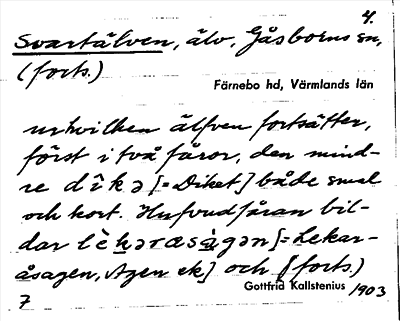 4.
Svartälven, älv, Gåsborns sn,
(forts.)
Färnebo hd, Värmlands län
urhvilken älfven fortsätter,
först i två fåror, den mind-
re dîkə [= Diket] både smal
och kort. Hufvudfåran bil-
dar [= Lekar-
åsagen, Agen ek] och [forts.)
Gottfrid Kallstenius 1903
7